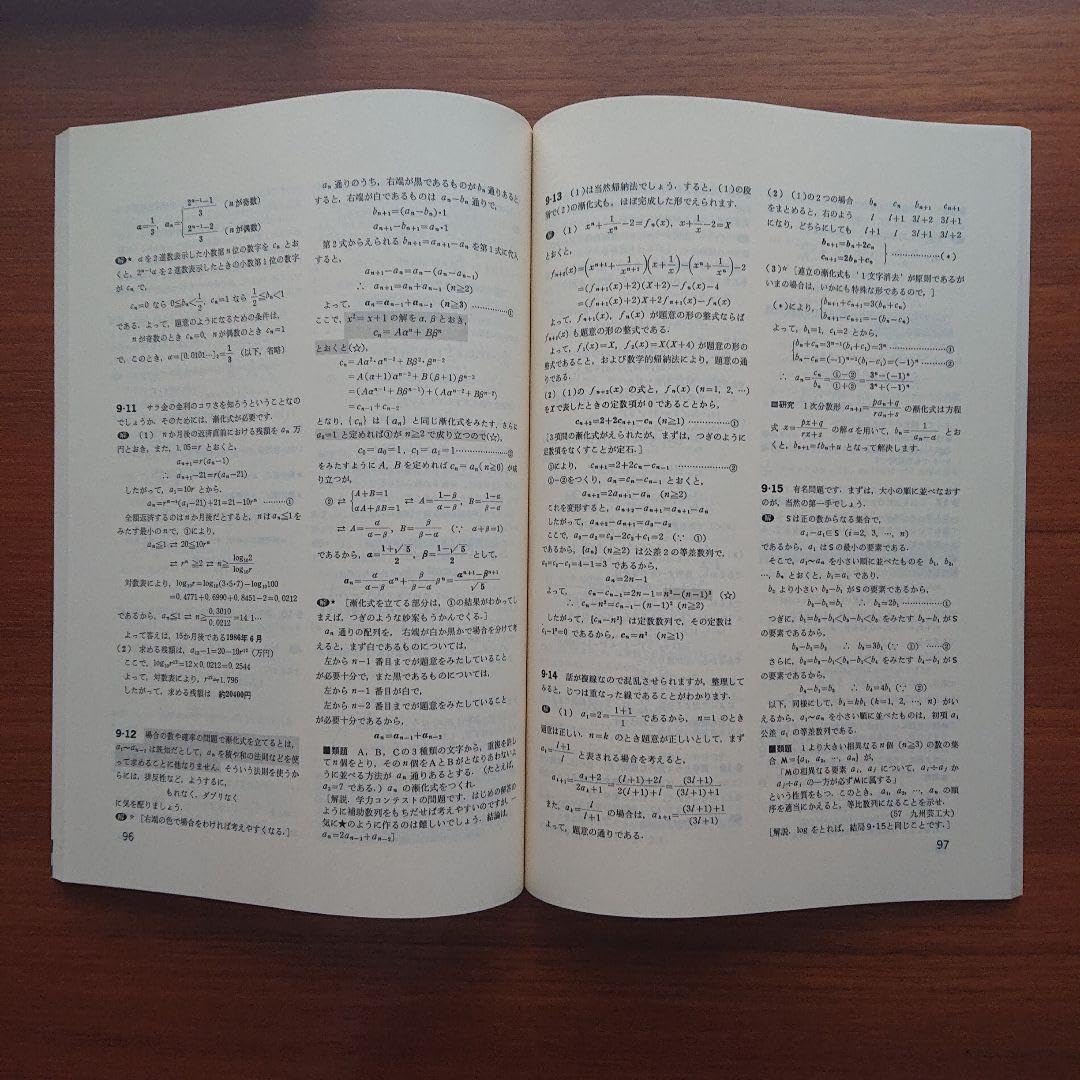 α=1/3, a_n={(2^{n-1}-1)/3 (nが奇数)
(2^{n-1}-2)/3 (nが偶数)
解* αを2進数表示した小数第n位の数字をc_nとお
くと, 2^{n-1}αを2進数表示したときの小数第1位の数字
がc_nで,
c_n=0なら0≦b_n<1/2, c_n=1なら1/2≦b_n<1
である. よって, 題意のようになるための条件は,
nが奇数のときc_n=0, nが偶数のときc_n=1
で, このとき, α=[0.0101…]_2=1/3 (以下, 省略)
9·11 サラ金の金利のコワさを知ろうということなの
でしょうか. そのためには, 漸化式が必要です.
解 (1) nか月後の返済直前における残額をa_n万
円とおき, また, 1.05=rとおくと,
a_{n+1}=r(a_n-1)
∴ a_{n+1}-21=r(a_n-21)
したがって, a_1=10rとから,
a_n=r^{n-1}(a_1-21)+21=21-10r^n ………①
全額返済するのはnか月後だとすると, nはa_n≦1を
みたす最小のnで, ①により,
a_n≦1 ⇄ 20≦10r^n
⇄ r^n≧2 ⇄ n≧log_{10}2/log_{10}r
対数表により, log_{10}r=log_{10}(3·5·7)-log_{10}100
=0.4771+0.6990+0.8451-2=0.0212
であるから, a_n≦1 ⇄ n≧0.3010/0.0212=14.1…
よって答えは, 15か月後である1986年6月
(2) 求める残額は, a_{12}-1=20-10r^{12}(万円)
ここで, log_{10}r^{12}=12×0.0212=0.2544
よって, 対数表により, r^{12}≒1.796
したがって, 求める残額は 約20400円
9·12 場合の数や確率の問題で漸化式を立てるとは,
a_1~a_{n-1}は既知だとして, a_nを積や和の法則などを使
って求めることに他なりません. そういう法則を使うか
らには, 排反性など, ようするに,
もれなく, ダブリなく
に気を配りましょう.
解* [右端の色で場合をわければ考えやすくなる.]
96
a_n通りのうち, 右端が黒であるものがb_n通りあると
すると, 右端が白であるものはa_n-b_n通りで,
b_{n+1}=(a_n-b_n)·1
a_{n+1}-b_{n+1}=a_n·1
第2式からえられるb_{n+1}=a_{n+1}-a_nを第1式に代入
すると,
a_{n+1}-a_n=a_n-(a_n-a_{n-1})
∴ a_{n+1}=a_n+a_{n-1} (n≧2)
よって, a_n=a_{n-1}+a_{n-2} (n≧3) ………①
ここで, x^2=x+1の解をα, βとおき,
c_n=Aα^n+Bβ^n
とおくと(☆),
c_n=Aα^2·α^{n-2}+Bβ^2·β^{n-2}
=A(α+1)α^{n-2}+B(β+1)β^{n-2}
=(Aα^{n-1}+Bβ^{n-1})+(Aα^{n-2}+Bβ^{n-2})
=c_{n-1}+c_{n-2}
となり, {c_n}は{a_n}と同じ漸化式をみたす. さらに
a_0=1と定めれば①がn≧2で成り立つので(☆),
c_0=a_0=1, c_1=a_1=1 ………②
をみたすようにA, Bを定めればc_n=a_n(n≧0)が成
り立つが,
② ⇄ {A+B=1
αA+βB=1 ⇄ A=(1-β)/(α-β), B=(1-α)/(β-α)
⇄ A=α/(α-β), B=β/(β-α) (∵ α+β=1)
であるから, α=(1+√5)/2, β=(1-√5)/2として,
a_n=α/(α-β)α^n+β/(β-α)β^n=(α^{n+1}-β^{n+1})/√5
解* [漸化式を立てる部分は, ①の結果がわかってし
まえば, つぎのような妙案もうかんでくる.]
a_n通りの配列を, 右端が白か黒かで場合を分けて考
えると, まず白であるものについては,
左からn-1番目までが題意をみたしていること
が必要十分で, また黒であるものについては,
左からn-1番目が白で,
左からn-2番目までが題意をみたしていること
が必要十分であるから,
a_n=a_{n-1}+a_{n-2}
■類題 A, B, Cの3種類の文字から, 重複を許し
てn個をとり, そのn個をAとBがとなりあわないよ
うに並べる方法がa_n通りあるとする. (たとえば,
a_2=7である.) a_nの漸化式をつくれ.
[解説. 学力コンテストの問題です. はじめの解答の
ように補助数列をもちだせば考えやすいのですが, 一
気に★のように作るのは難しいでしょう. 結論は,
a_n=2a_{n-1}+a_{n-2}]
9·13 (1)は当然帰納法でしょう. すると, (1)の段
階で(2)の漸化式も, ほぼ完成した形でえられます.
解 (1) x^n+1/x^n-2=f_n(x), x+1/x-2=X
とおくと,
f_{n+2}(x)=(x^{n+1}+1/x^{n+1})(x+1/x)-(x^n+1/x^n)-2
=(f_{n+1}(x)+2)(X+2)-f_n(x)-4
=(f_{n+1}(x)+2)X+2f_{n+1}(x)-f_n(x)
よって, f_{n+1}(x), f_n(x)が題意の形の整式ならば
f_{n+2}(x)も題意の形の整式である.
よって, f_1(x)=X, f_2(x)=X(X+4)が題意の形の
整式であること, および数学的帰納法により, 題意の通
りである.
(2) (1)のf_{n+2}(x)の式と, f_n(x) (n=1, 2, …)
をXで表したときの定数項が0であることから,
c_{n+2}=2+2c_{n+1}-c_n (n≧1) ………①
[3項間の漸化式がえられたが, まずは, つぎのように
定数項をなくすことが定石.]
①により, c_{n+1}=2+2c_n-c_{n-1} ………②
①-②をつくり, a_n=c_n-c_{n-1}とおくと,
a_{n+2}=2a_{n+1}-a_n (n≧2)
これを変形すると, a_{n+2}-a_{n+1}=a_{n+1}-a_n
したがって, a_{n+2}-a_{n+1}=a_3-a_2
ここで, a_3-a_2=c_3-2c_2+c_1=2 (∵ ①)
であるから, {a_n} (n≧2)は公差2の等差数列で,
c_2=c_2-c_1=4-1=3であるから,
a_n=2n-1
よって, c_n-c_{n-1}=2n-1=n^2-(n-1)^2 (☆)
∴ c_n-n^2=c_{n-1}-(n-1)^2 (n≧2)
したがって, {c_n-n^2}は定数数列で, その定数は
c_1-1^2=0であるから, c_n=n^2 (n≧1)
9·14 話が複線なので混乱させられますが, 整理して
みると, じつは重なった線であることがわかります.
解 (1) a_1=2=(1+1)/1であるから, n=1のとき
題意は正しい. n=kのとき題意が正しいとして, まず
a_k=(l+1)/lと表される場合を考えると,
a_{k+1}=(a_k+2)/(2a_k+1)=((l+1)+2l)/(2(l+1)+l)=(3l+1)/((3l+1)+1)
また, a_k=l/(l+1)の場合は, a_{k+1}=((3l+1)+1)/(3l+1)
よって, 題意の通りである.
(2) (1)の2つの場合
をまとめると, 右のよう
になり, どちらにしても
b_n c_n b_{n+1} c_{n+1}
l l+1 3l+2 3l+1
l+1 l 3l+1 3l+2
b_{n+1}=b_n+2c_n
c_{n+1}=2b_n+c_n ………(*)
(3)* [連立の漸化式も‘1文字消去’が原則であるが
いまの場合は, いかにも特殊な形であるので,]
(*)により, {b_{n+1}+c_{n+1}=3(b_n+c_n)
b_{n+1}-c_{n+1}=-(b_n-c_n)
よって, b_1=1, c_1=2とから,
{b_n+c_n=3^{n-1}(b_1+c_1)=3^n ………①
b_n-c_n=(-1)^{n-1}(b_1-c_1)=(-1)^n ………②
∴ a_n=c_n/b_n=(①-②)/(①+②)=(3^n-(-1)^n)/(3^n+(-1)^n)
■研究 1次分数形 a_{n+1}=(pa_n+q)/(ra_n+s)の漸化式は方程
式 x=(px+q)/(rx+s)の解αを用いて, b_n=1/(a_n-α)とお
くと, b_{n+1}=tb_n+uとなって解決します.
9·15 有名問題です. まずは, 大小の順に並べなおす
のが, 当然の第一手でしょう.
解 Sは正の数からなる集合で,
a_i-a_1∈S (i=2, 3, …, n)
であるから, a_1はSの最小の要素である.
そこで, a_1~a_nを小さい順に並べたものをb_1, b_2,
…, b_nとおくと, b_1=a_1であり,
b_2より小さいb_2-b_1がSの要素であるから,
b_2-b_1=b_1 ∴ b_2=2b_1 ………①
つぎに, b_1=b_2-b_1<b_3-b_1<b_3をみたすb_3-b_1がS
の要素であるから,
b_3-b_1=b_2 ∴ b_3=3b_1 (∵ ①) ………②
さらに, b_2=b_3-b_1<b_4-b_1<b_4をみたすb_4-b_1がS
の要素であるから,
b_4-b_1=b_3 ∴ b_4=4b_1 (∵ ②)
以下, 同様にして, b_k=kb_1 (k=1, 2, …, n)がい
えるから, a_1~a_nを小さい順に並べたものは, 初項a_1
公差a_1の等差数列である.
■類題 1より大きい相異なるn個(n≧3)の数の集
合M={a_1, a_2, …, a_n}が,
「Mの相異なる要素a_i, a_jについて, a_i÷a_jか
a_j÷a_iの一方が必ずMに属する」
という性質をもつ. このとき, a_1, a_2, …, a_nの順
序を適当にかえると, 等比数列になることを示せ.
(57 九州芸工大)
[解説. logをとれば, 結局9·15と同じことです.]
97